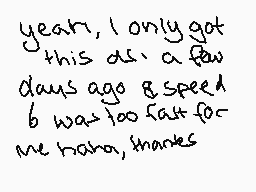 yeah, I only got
this dsi a few
days ago & speed
6 was too fast for
me haha, thanks